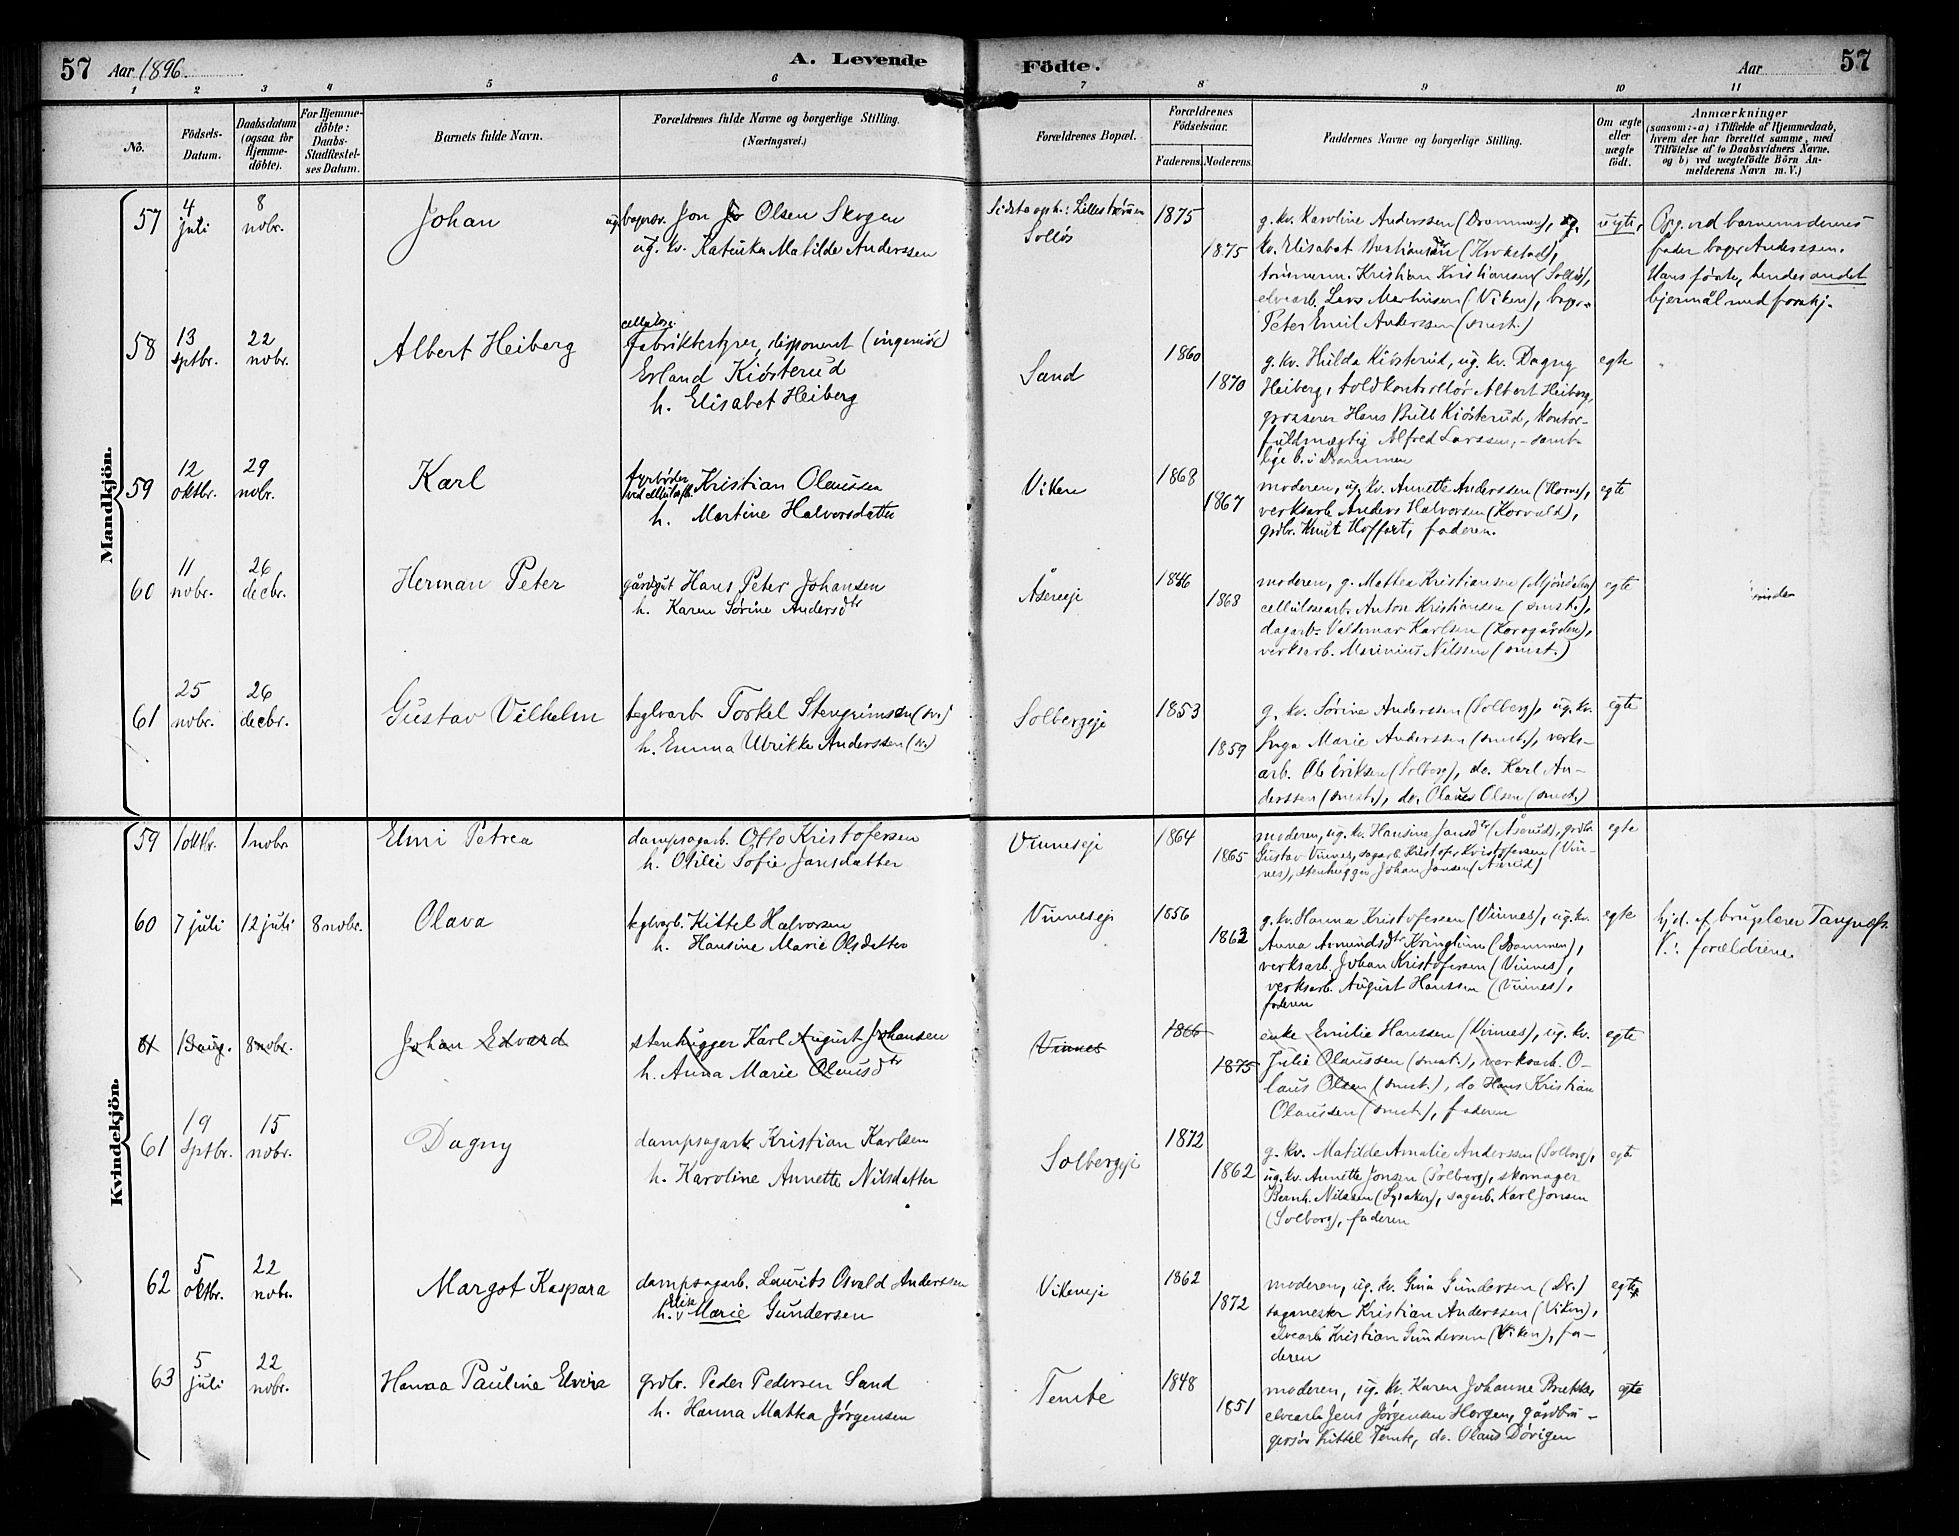 57 Aar 1896.
A. Levende
Födte.
Aar
57
1 2 3 4 5 6 7 8 9 10 11
No.
Födsels-
Datum.
Daabsdatum
(ogsaa for
Hjemme-
döbte).
For Hjemme-
döbte:
Daabs-
Stadfæstel-
ses Datum.
Barnets fulde Navn.
Forældrenes fulde Navne og borgerlige Stilling.
(Næringsvei.)
Forældrenes Bopæl.
Forældrenes
Födselsaar.
Faderens.
Moderens.
Faddernes Navne og borgerlige Stilling.
Om ægte
eller
uægte
födt.
Anmærkninger
(saasom:-a) i Tilfælde af Hjemmedaab,
hvem der har forrettet samme, med
Tilföielse af to Daabsvidners Navne.
og b) ved uægtefödte Börn An-
melderens Navn m. V.)
Mandkjön.
57
4
juli
8
nobr.
Johan
Jon Olsen Skogen
ug. kv. Katinka Matilde Anderssen
Sidste oph.: Lillestrømmen
Solløs
1875
1875
g. kv. Karoline Anderssen (Drammen), ug.
kv. Elisabet
tømmerm. Kristian Kristiansen (Solløs),
elvearb. Lars Martinsen (Viken),
Peter Emil Anderssen (smst.)
uegte,
Opg. ved barnemoderens
fader Anderssen.
Hans første, hendes andet
58
13
sptbr.
22
nobr.
Albert Heiberg
cellulose-
fabrikbestyrer, disponent (ingeniør)
Erland Kiøsterud
h. Elisabet Heiberg
Sand
1860
1870
g. kv. Hulda Kiøsterud, ug. kv. Dagny
Heiberg, toldkontrollør Albert Heiberg,
grosserer Hans Kiøsterud, kontor-
fuldmægtig Alfred Larssen, - samt-
lige b. i Drammen
egte
59
12
oktbr.
29
nobr.
Karl
fyrbøder Kristian Olaussen
h. Martine Halvorsdatter
Viken
1868
1867
moderen, ug. kv. Annette Anderssen (Horne),
verksarb. Anders Halvorsen (Korvald),
grdbr. Knut Hoffart, faderen.
egte
60
11
nobr.
26
decbr.
Herman Peter
gårdgut Hans Peter Johansen
h. Karen Sørine Andersdtr
Åserseje
1846
1868
moderen, g. Mattea Kristiansen (Mjøndalen)
cellulosearb. Anton Kristiansen (smst.),
dagarb. Valdemar Karlsen (Horsgården),
verksarb. Marinius Nilssen (smst.)
egte
61
25
nobr.
26
decbr.
Gustav Vilhelm
teglvarb. Torkel Stengrimsen (sv.)
h. Emma Ulrikke Anderssen (n.)
Solbergeje
1853
1859
g. kv. Sørine Anderssen (Solberg), ug. kv.
Inga Marie Anderssen (smst.), verks-
arb. Ole Eriksen (Solberg), do. Karl An-
derssen (smst.), do. Olaus Olsen (smst.)
egte
Kvindekjön.
59
1 oktbr.
1 nobr.
Elmi Petrea
dampsagarb. Otto Kristofersen
h. Otilie Sofie Jansdatter
Vinneseje
1864
1865
moderen, ug. kv. Hansine Jansdtr (Åserud), grdbr.
Gustav Vinnes, sagarb. Kristofer Kristofersen (Vin-
nes), stenhugger Johan Jansen (Åserud)
egte
60
7 juli
12 juli
8 nobr.
Olava
teglvarb. Kittel Halvorsen
h. Hansine Marie Olsdatter
Vinneseje
1856
1862
g. kv. Hanna Kristofersen (Vinnes), ug. kv.
Anna Amundsdtr Kringlum (Drammen),
verksarb. Johan Kristofersen (Vinnes),
verksarb. August Hanssen (Vinnes),
faderen
egte
hj.d. af brugslærer Tangnæss.
V.: forældrene
61
13 aug.
8 nobr.
Johan Edvard
stenhugger Karl August Johansen
h. Anna Marie Olausdtr
Vinnes
1866
1875
enke Emilie Hanssen (Vinnes), ug. kv.
Julie Olaussen (smst.), verksarb. O-
laus Olsen (smst.), do Hans Kristian
Olaussen (smst.), faderen
egte
61
19
sptbr.
15
nobr.
Dagny
dampsagarb. Kristian Karlsen
h. Karoline Annette Nilsdatter
Solbergeje
1872
1862
g. kv. Matilde Amalie Anderssen (Solberg),
ug. kv. Annette Jonsen (Solberg), skomager
Bernh. Nilssen (Lysaker), sagarb. Karl Jonsen
(Solberg), faderen
egte
62
5
oktbr.
22
nobr.
Margot Kaspara
dampsagarb. Laurits Osvald Anderssen
h. Elise Marie Gundersen
Vikeneje
1862
1872
moderen, ug. kv. Gina Gundersen (Dr.)
sagmester Kristian Anderssen (Viken),
elvearb. Kristian Gundersen (Viken), fa-
deren
egte
63
5
juli
22
nobr.
Hanna Pauline Elvira
grdbr. Peder Pedersen Sand
h. Hanna Mattea Jørgensen
Temte
1848
1851
moderen, ug. kv. Karen Johanne Brække,
elvearb. Jens Jørgensen Horgen, gårdbru-
gersøn Kittel Temte, do. Olaus Dørigen
egte